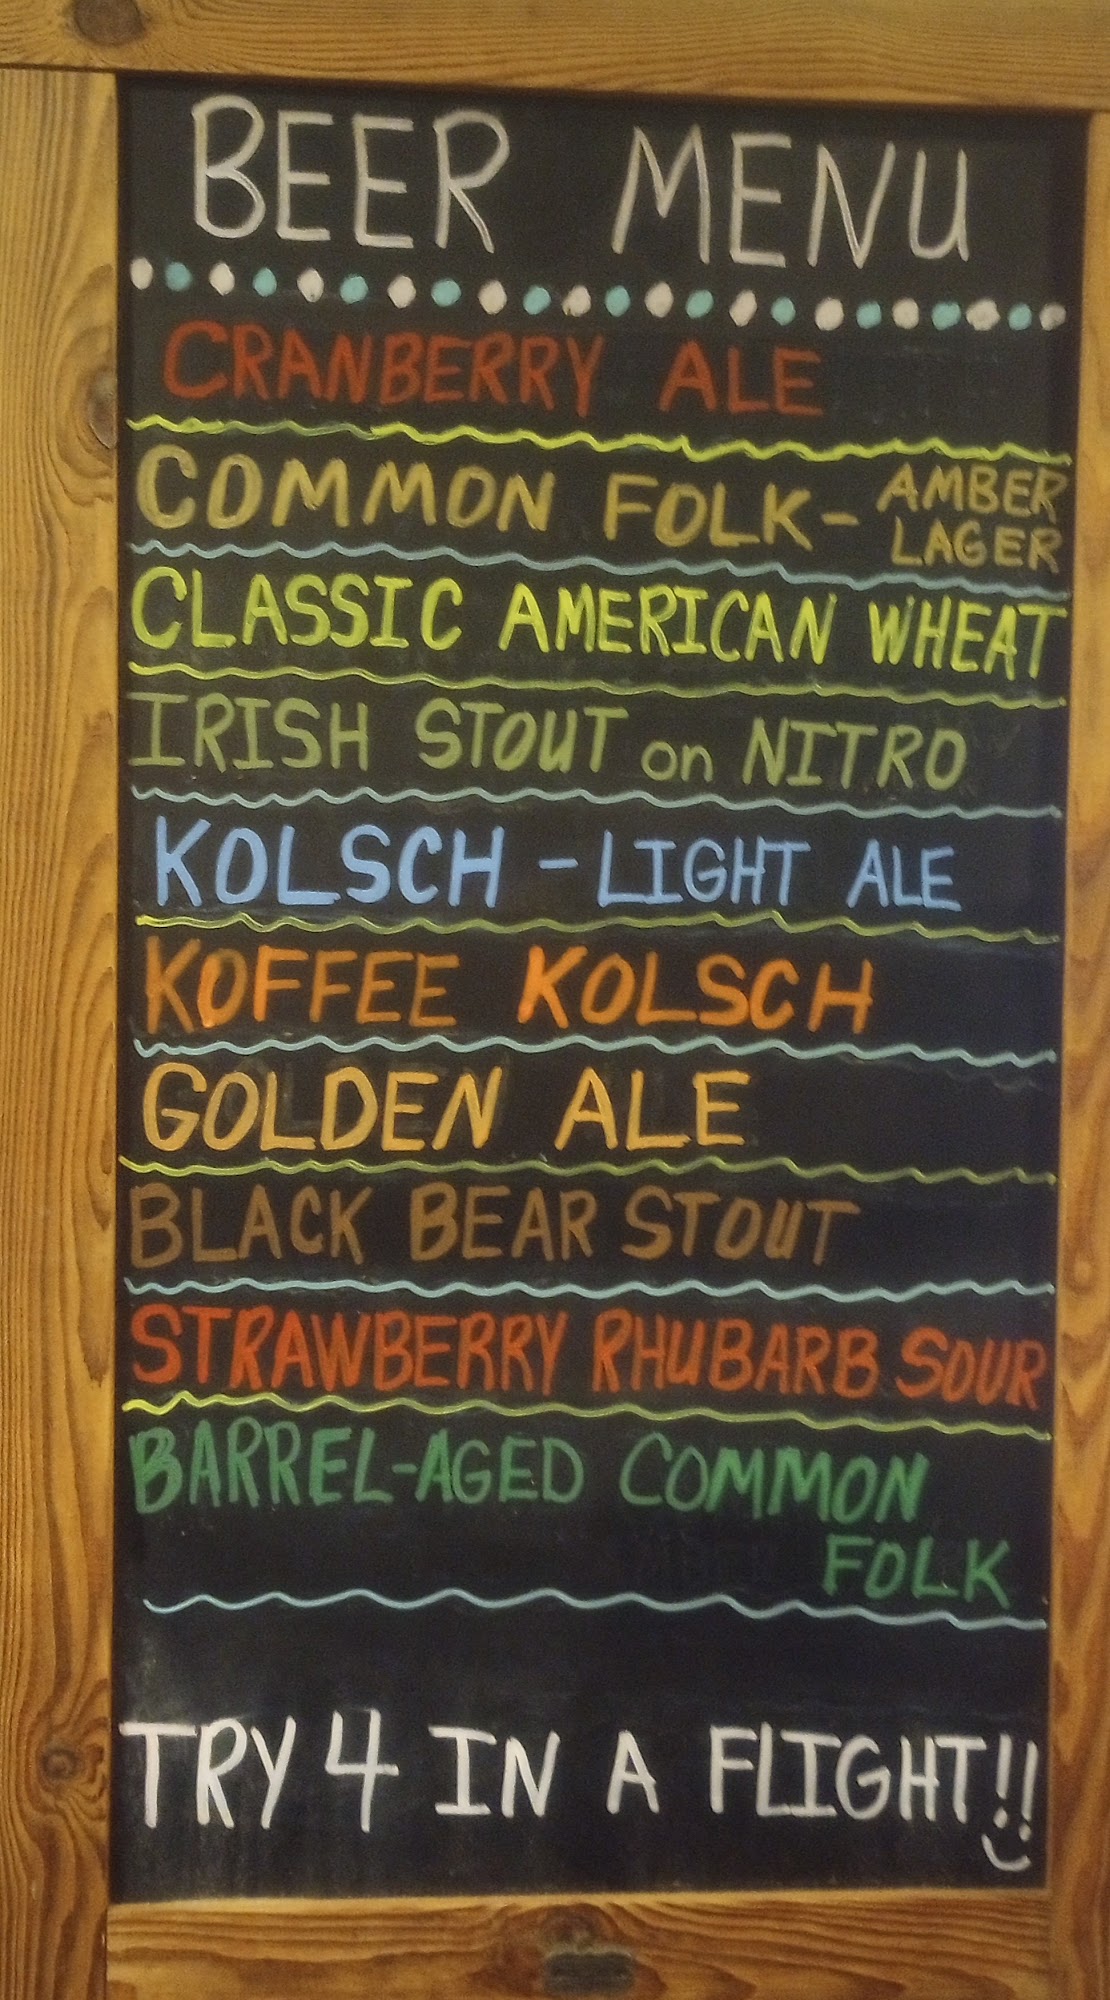 BEER MENU
CRANBERRY ALE
COMMON FOLK - AMBER
LAGER
CLASSIC AMERICAN WHEAT
IRISH STOUT on NITRO
KOLSCH - LIGHT ALE
KOFFEE KOLSCH
GOLDEN ALE
BLACK BEAR STOUT
STRAWBERRY RHUBARB SOUR
BARREL-AGED COMMON
FOLK
TRY 4 IN A FLIGHT!!